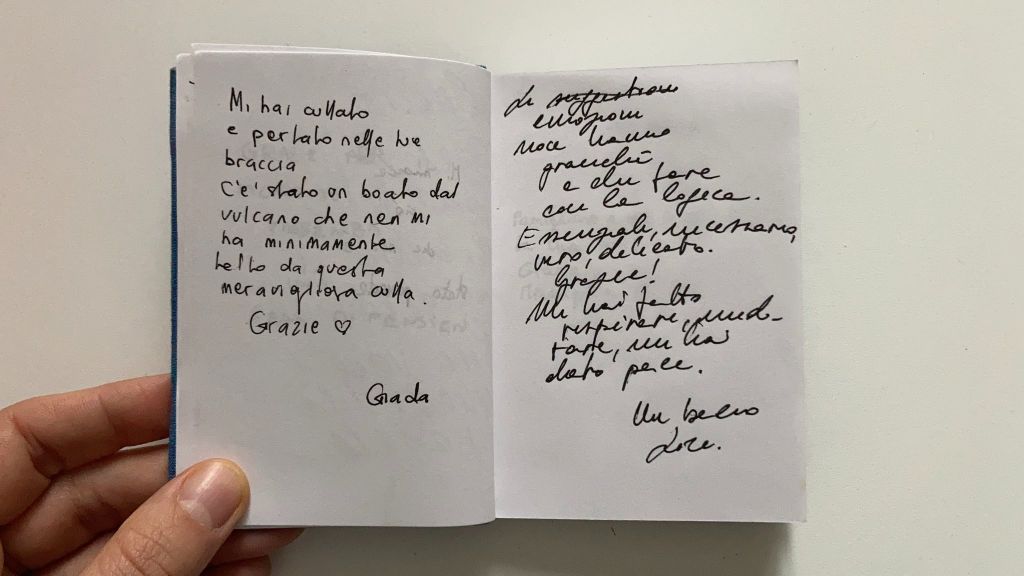 Mi hai cullato
e portato nelle tue
braccia
C'e' stato un boato dal
vulcano che non mi
ha minimamente
tolto da questa
meravigliosa culla.
Grazie ♡
Giada
Le suggestioni
emozioni
non hanno
granché
a che fare
con la logica.
Essenziale, necessario,
vero, delicato.
Grazie!
Mi hai fatto
respirare, nuo-
tare, mi hai
dato pace.
Un bacio